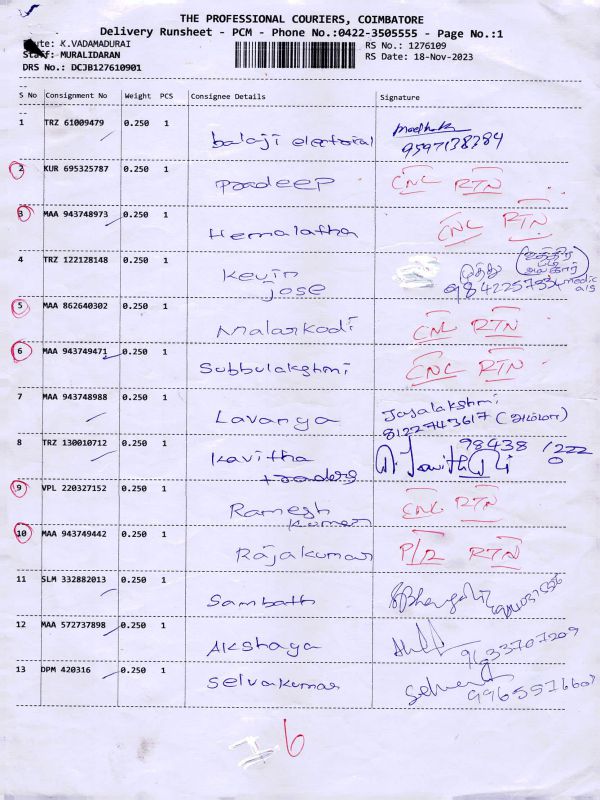 THE PROFESSIONAL COURIERS, COIMBATORE
Delivery Runsheet - PCM - Phone No.:0422-3505555 - Page No.:1
Route: K.VADAMADURAI
RS No.: 1276109
Staff: MURALIDARAN
RS Date: 18-Nov-2023
DRS No.: DCJB127610901
S No Consignment No Weight PCS Consignee Details Signature
1 TRZ 61009479 0.250 1 balaji electrical
9597138384
2 KUR 695325787 0.250 1 Pradeep CNL RTN
3 MAA 943748973 0.250 1 Hemalatha CNL RTN
4 TRZ 122128148 0.250 1 Kevin
jose
5 MAA 862640302 0.250 1 Malarkodi CNL RTN
6 MAA 943749471 0.250 1 Subbulakshmi CNL RTN
7 MAA 943748988 0.250 1 Lavanya Jayalakshmi
8122743617 (அம்மா)
8 TRZ 130010712 0.250 1 Kavitha
traders
98438 1222
0
9 VPL 220327152 0.250 1 Ramesh
Kumar
CNL RTN
10 MAA 943749442 0.250 1 Rajakumar P/2 RTN
11 SLM 332882013 0.250 1 Sambath
12 MAA 572737898 0.250 1 Akshaya
9633707209
13 DPM 420316 0.250 1 Selvakumar
6